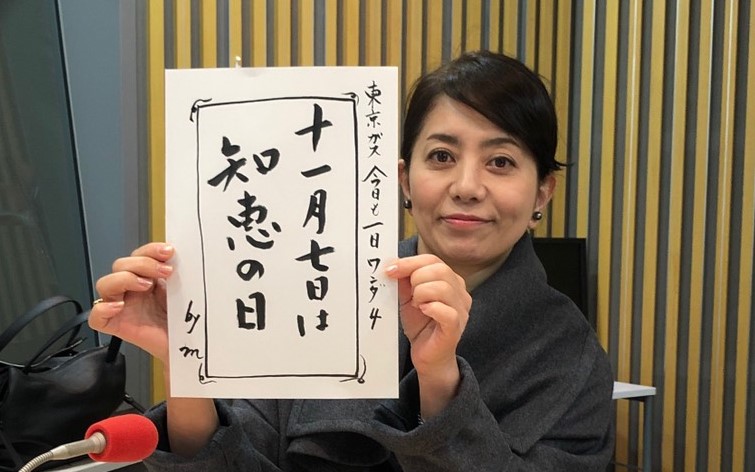 東京ガス 今日も一日ワンダ4
十一月七日は
知恵の日
by m